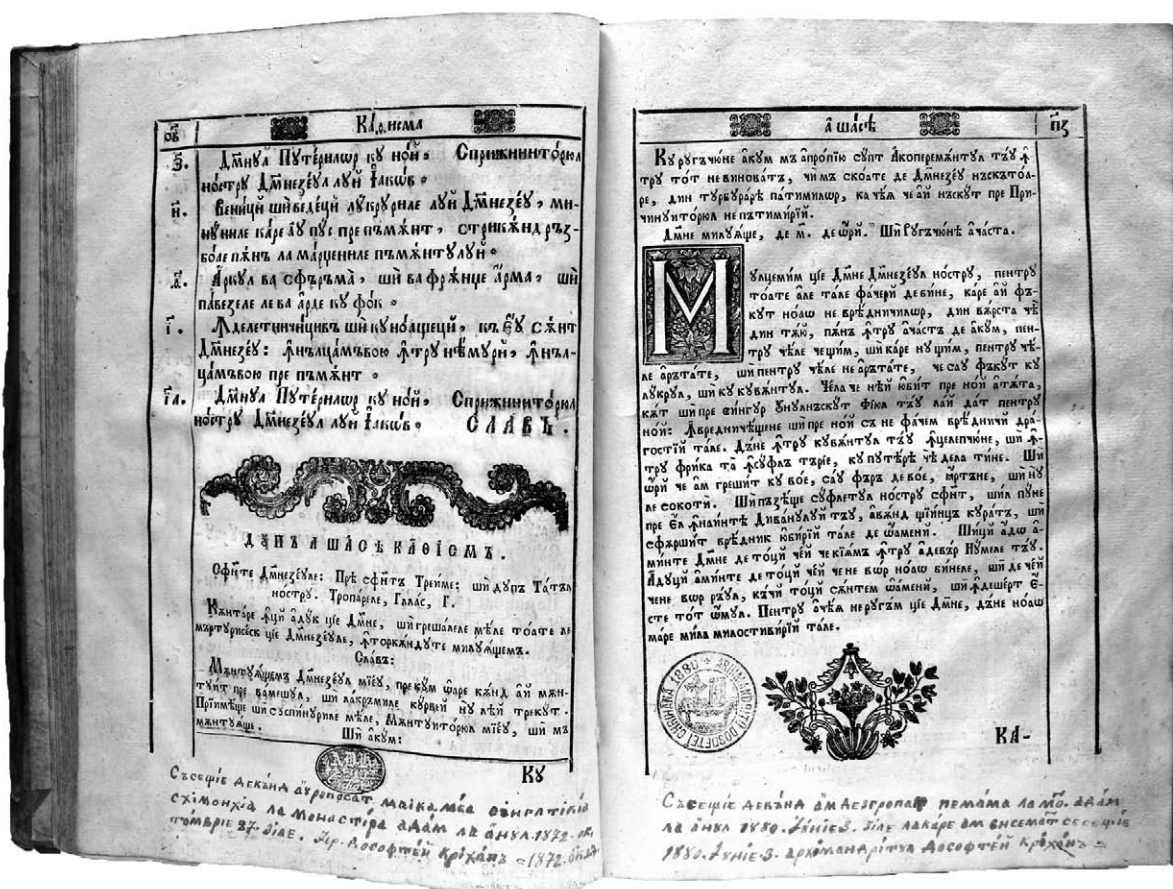 ѻ҃в Каѳисма
з҃. Дм҃нꙋл Пꙋте́рилѡр кꙋ но́й, Сприжинито́рюл
но́стрꙋ Дм҃незе́ꙋл лꙋй І҆а́кѡв.
и҃. Вени́цй шѝ веде́цй лꙋ́крꙋриле лꙋй Дм҃незе́ꙋ, ми-
нꙋ́ниле ка́ре аꙋ҆ пꙋс пре пъмѫ́нт, стрикѫ́нд ръз-
бо́ѧле пѫ́нъ ла ма́рџениле пъмѫ́нтꙋлꙋй.
ѳ҃. А҆́ркꙋл ва сфъръма̀, шѝ ва фрѫ́нџе а҆́рма, шѝ
па́везеле ле ва а҆́рде кꙋ фо́к.
і҃. кꙋноа́щецй, къ Е҆́ꙋ сѫ́нт
Дм҃незе́ꙋ: ꙟ҆нълца́мъвою ꙟ҆́трꙋ нѣ́мꙋрй, ꙟ҆нъл-
ца́мъвою пре пъмѫ́нт.
а҃і. Дм҃нꙋл Пꙋте́рилѡр кꙋ но́й, Сприжинито́рюл
но́стрꙋ Дм҃незе́ꙋл лꙋй І҆а́кѡв. СЛАВЪ.
ДꙋПЪ А ШАСѢ КАѲІСМЪ.
Сфи́те Дм҃незе́ꙋле: Прѣ сфи́тъ Тре́име: шѝ дꙋ́пъ Та́тъл
но́стрꙋ. Тропа́реле, Гла́с, Г.
Кѫнта́ре ꙟ҆ци а҆дꙋ́к ціе Дм҃не, шѝ греша́леле мѣ́ле тоа́те ле
мъртꙋрисе́ск ціе Дм҃незе́ꙋле, ꙟ҆то́ркѫндꙋте милꙋѧ́щемъ.
Сла́въ:
Мѫнтꙋѧ́щемъ Дм҃незе́ꙋл мі́еꙋ, пре́кꙋм ѡ҆а́ре кѫ́нд а҆й мѫн-
тꙋи́т пре ва́мешꙋл, шѝ ла́крѫмиле кꙋ́рвей нꙋ лѣ́й трекꙋ́т.
Прїимѣ́ще шѝ сꙋспи́нꙋриле мѣ́ле, Мѫнтꙋито́рюл мі́еꙋ, шѝ мъ
мѫнтꙋѧ́ще.
Шѝ а҆кꙋ́м:
Кꙋ
Съсещіе декънд маика мѣа
схімонхіа ла Монастірѣ адам ла анꙋл 1872. ок
томбріе 27. зіле. Іер. Дософтей Кріханъ = 1872.
а҆ ша́сѣ п҃з
Кꙋ рꙋгъчю́не а҆кꙋ́м мъ апро́пїю сꙋ́пт А҆коперемѫ́нтꙋл тъ́ꙋ ꙟ҆́
трꙋ то́т невинова́тъ, чи мъ скоа́те де Дм҃незе́ꙋ нъскътоа́-
ре, дин тꙋрбꙋра́рѣ па́тимилѡр, ка чѣ́ѧ че а́й нъскꙋ́т пре При-
чинꙋито́рюл непътими́рїй.
Дм҃не милꙋѧ́ще, де м҃. де ѡ҆́рй. Шѝ Рꙋгъчю́нѣ ача́ста.
Мꙋлцеми́м ціе Дм҃не Дм҃незе́ꙋл но́стрꙋ, пе́нтрꙋ
тоа́те а҆ле та́ле фа́черй де би́не, ка́ре а҆й фъ-
кꙋ́т ноаѡ҆ невре́дничилѡр, дин вѫ́рста чѣ
дин тѫ́ю, пѫ́нъ ꙟ҆́трꙋ ача́стъ де а҆кꙋ́м, пен-
трꙋ чѣ́ле че щи́м, шѝ ка́ре нꙋ щи́м, пе́нтрꙋ чѣ́-
ле а҆рѫта́те, шѝ пе́нтрꙋ чѣ́ле неа҆рѫта́те, че са́ꙋ фъкꙋ́т кꙋ
лꙋ́крꙋл, шѝ кꙋ кꙋвѫ́нтꙋл. Че́ла че нѣ́й юби́т пре но́й атѫ́та,
кѫ́т шѝ пре си́нгꙋр Ꙋнꙋлнъскꙋ́т Фі́юл тъ́ꙋ ла́й да́т пе́нтрꙋ
но́й: ꙟ҆вредничѣ́щене шѝ пре но́й съ не фа́чем вре́дничй дра́-
гостїй та́ле. Дъ́не ꙟ҆́трꙋ кꙋвѫ́нтꙋл тъ́ꙋ ꙟ҆целепчю́не, шѝ ꙟ҆́-
трꙋ фри́ка та̀ ꙟ҆сꙋ́флъ тъ́рїе, кꙋ пꙋте́рѣ чѣ де ла ти́не. Шѝ
ѡ҆́рй че а҆м греши́т кꙋ во́е, са́ꙋ фъ́ръ де во́е, ꙗ҆ртъ́не, шѝ нꙋ
ле сокотѝ. Шѝ пъзѣ́ще сꙋ́флетꙋл но́стрꙋ сфи́нт, шѝл пꙋ́не
пре Е҆л ꙟ҆наи́нтѣ Дива́нꙋлꙋй тъ́ꙋ, авѫ́нд щїи́нцъ кꙋра́тъ, шѝ
сфѫрши́т вре́дник юби́рїй та́ле де ѡ҆а́мени. Шѝцй а҆дѡ а҆-
ми́нте Дм҃не де то́цй че́й че кїѧ́мъ ꙟ҆́трꙋ адевъ́р Нꙋ́меле тъ́ꙋ.
А҆дꙋ́цй ами́нте де то́цй че́й че не во́р ноаѡ҆ би́неле, шѝ де че́й
че не во́р ръ́ꙋл, къ́чй то́цй сѫ́нтем ѡ҆а́мени, шѝ ꙟ҆деше́рт Е҆́-
сте то́т ѡ҆́мꙋл. Пе́нтрꙋ ачѣ́ѧ не рꙋгъ́м ціе Дм҃не, дъ́не ноаѡ҆
ма́ре ми́ла милостиви́рїй та́ле.
ARHIMANDRITU DOSOFTEI CRIHANĂ 1880
КА-
Съсещіе декънд ам дезгропат пе мама ла мо. адам
ла анꙋл 1880. Іꙋніе 3. зіле ла каре ам
1880. Іꙋніе 3. архімандрітꙋл Дософтей Кріханъ =